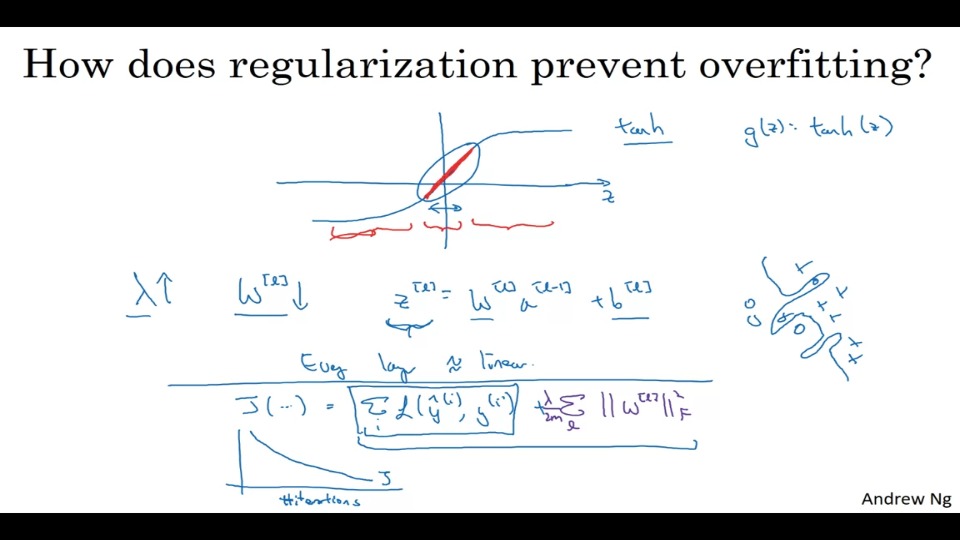 How does regularization prevent overfitting?
tanh g(z) = tanh(z)
z
λ↑ W^[l]↓ z^[l] = W^[l] a^[l-1] + b^[l]
Every layer ≈ linear.
J(···) = Σ_i L(ŷ^(i), y^(i)) + λ/2m Σ_l ||W^[l]||²_F
J
#iterations
Andrew Ng